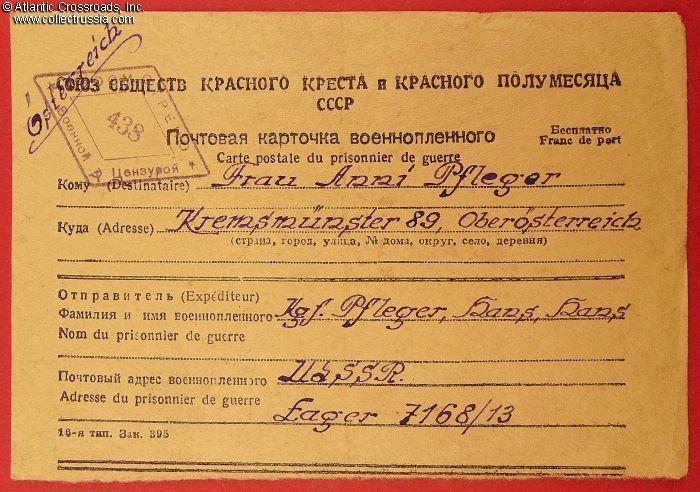 © Atlantic Crossroads, Inc.
www.collectrussia.com
Österreich
СОЮЗ ОБЩЕСТВ КРАСНОГО КРЕСТА и КРАСНОГО ПОЛУМЕСЯЦА
СССР
438
Военной
Цензурой
Почтовая карточка военнопленного
Carte postale du prisonnier de guerre
Бесплатно
Franc de port
Кому (Destinataire) Frau Anni Pfleger
Куда (Adresse) Kremsmünster 89, Oberösterreich
(страна, город, улица, № дома, округ, село, деревня)
Отправитель (Expéditeur)
Фамилия и имя военнопленного Kgf. Pfleger, Hans, Hans
Nom du prisonnier de guerre
Почтовый адрес военнопленного UdSSR.
Adresse du prisonnier de guerre
Lager 7168/13
16-я тип. Зак. 395